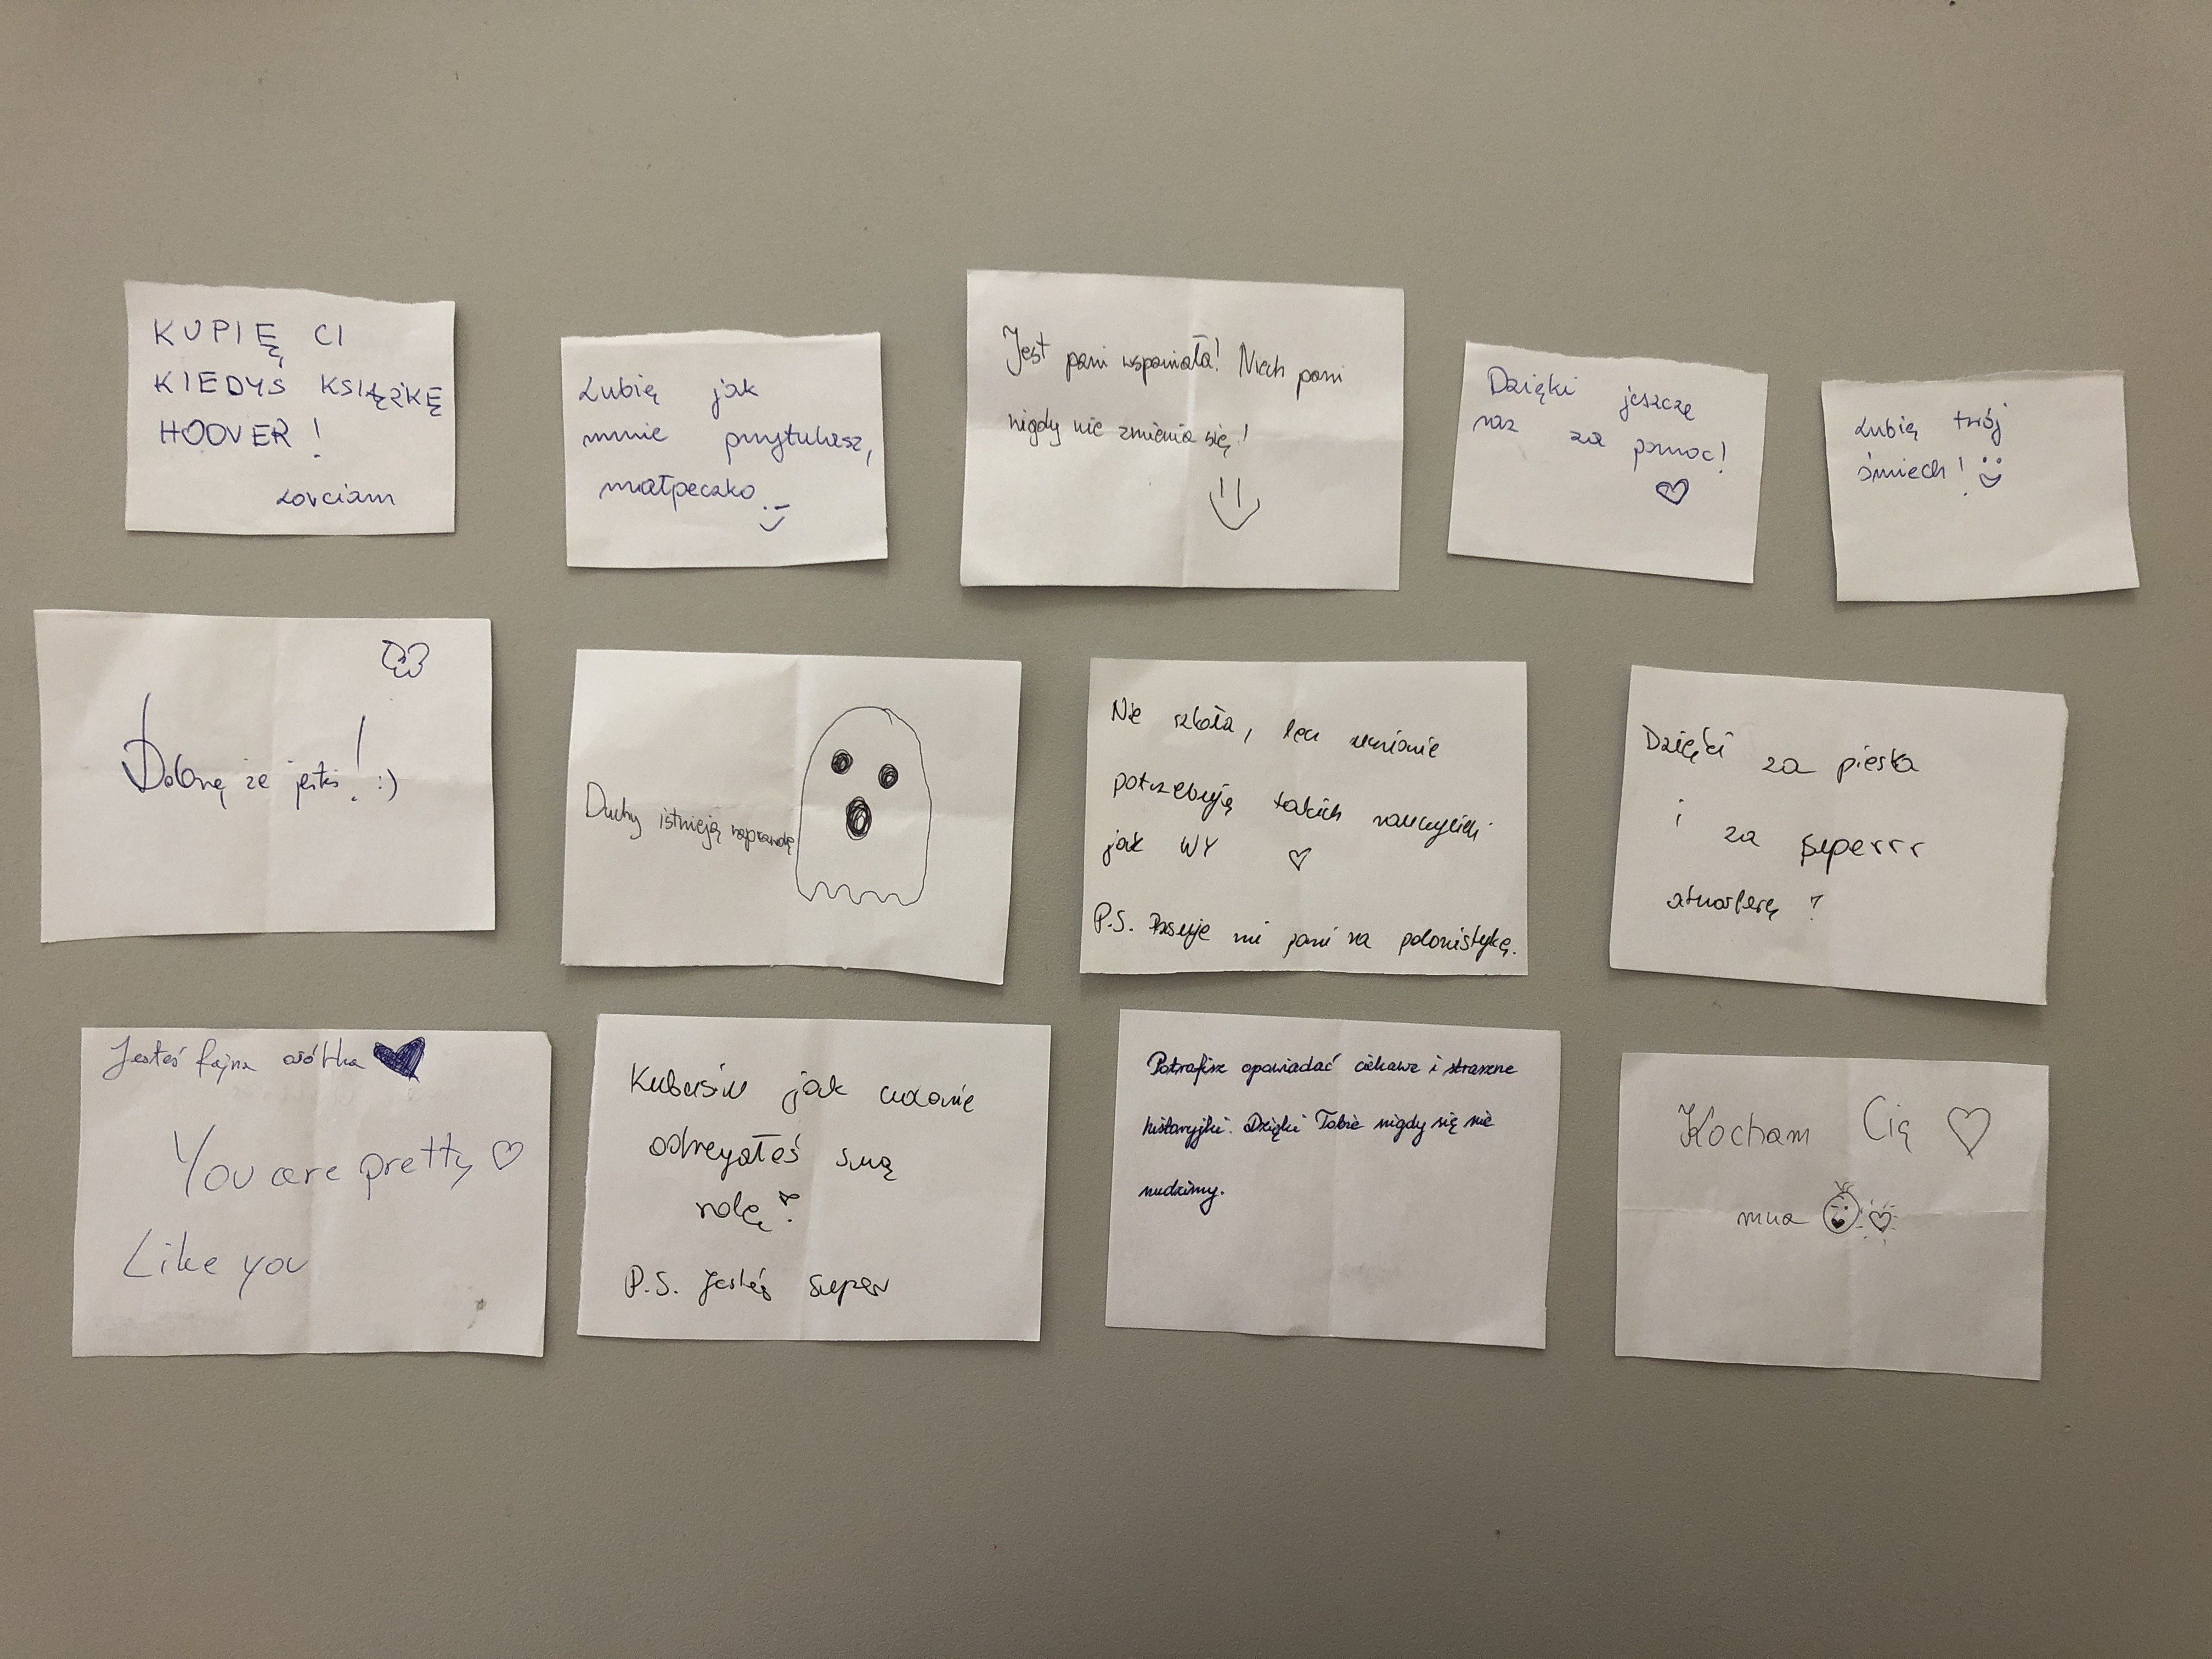 KUPIĘ CI
KIEDYŚ KSIĄŻKĘ
HOOVER!
Lovciam
Lubię jak
mnie przytulasz,
małpeczko
Jest pani wspaniała! Niech pani
nigdy nie zmienia się!
Dzięki jeszcze
raz za pomoc!
Lubię twój
śmiech!
Dobrze że jesteś! :)
Duchy istnieją naprawdę
Nie szkoła, lecz uczniowie
potrzebują takich nauczycieli
jak WY
P.S. Pasuje mi pani na polonistykę.
Dzięki za pieska
i za superrr
atmosferę
Jesteś fajna
You are pretty
Like you
Kubusiu jak cudownie
odegrałeś swą
rolę
P.S. Jesteś super
Potrafisz opowiadać ciekawe i straszne
historyjki. Dzięki Tobie nigdy się nie
nudzimy.
Kocham Cię
mua